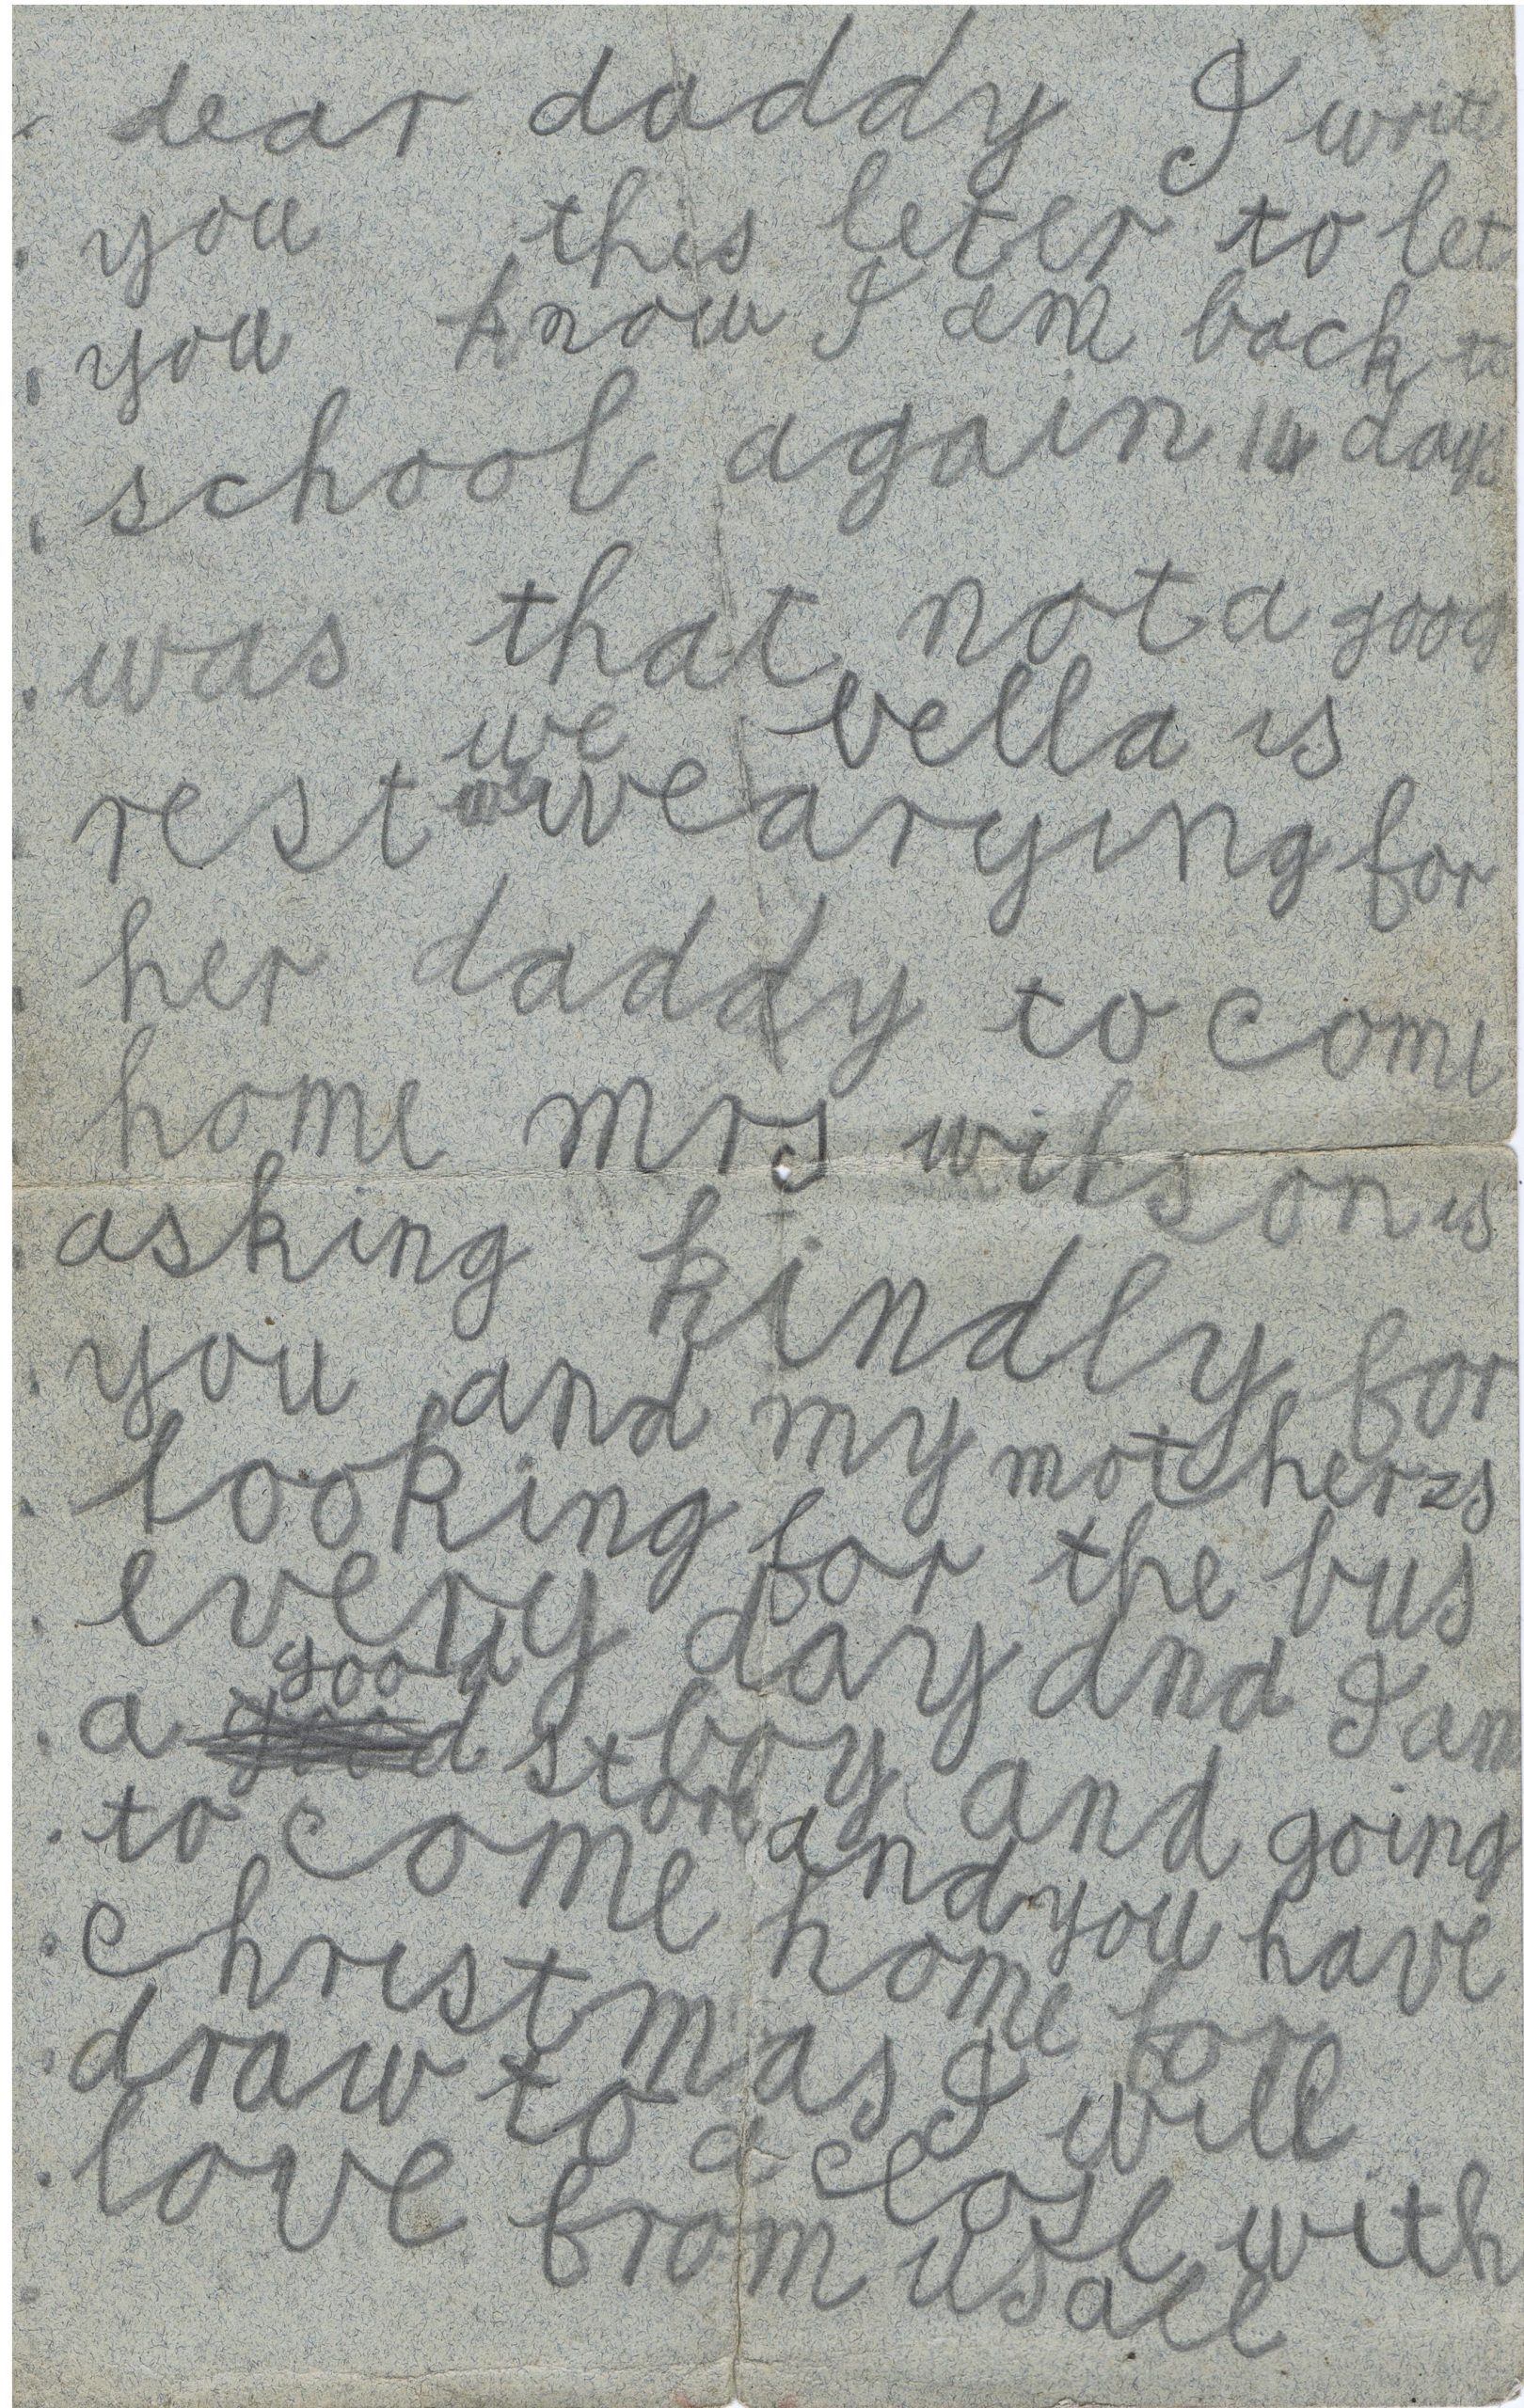 dear daddy I write
you this leter to let
you know I am back to
school again 14 days
was that not a good
we bella is
rest wearying for
her daddy to come
home mrs wilson is
asking kindly for
you and my mother is
looking for the bus
every day and I am
good
a boy and going
store and you have
to come home for
christmas I will
draw to a close with
love from us all